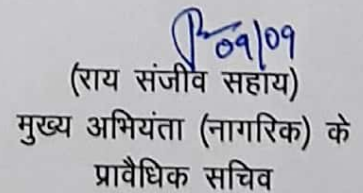 09/09
(राय संजीव सहाय)
मुख्य अभियंता (नागरिक) के
प्रावैधिक सचिव